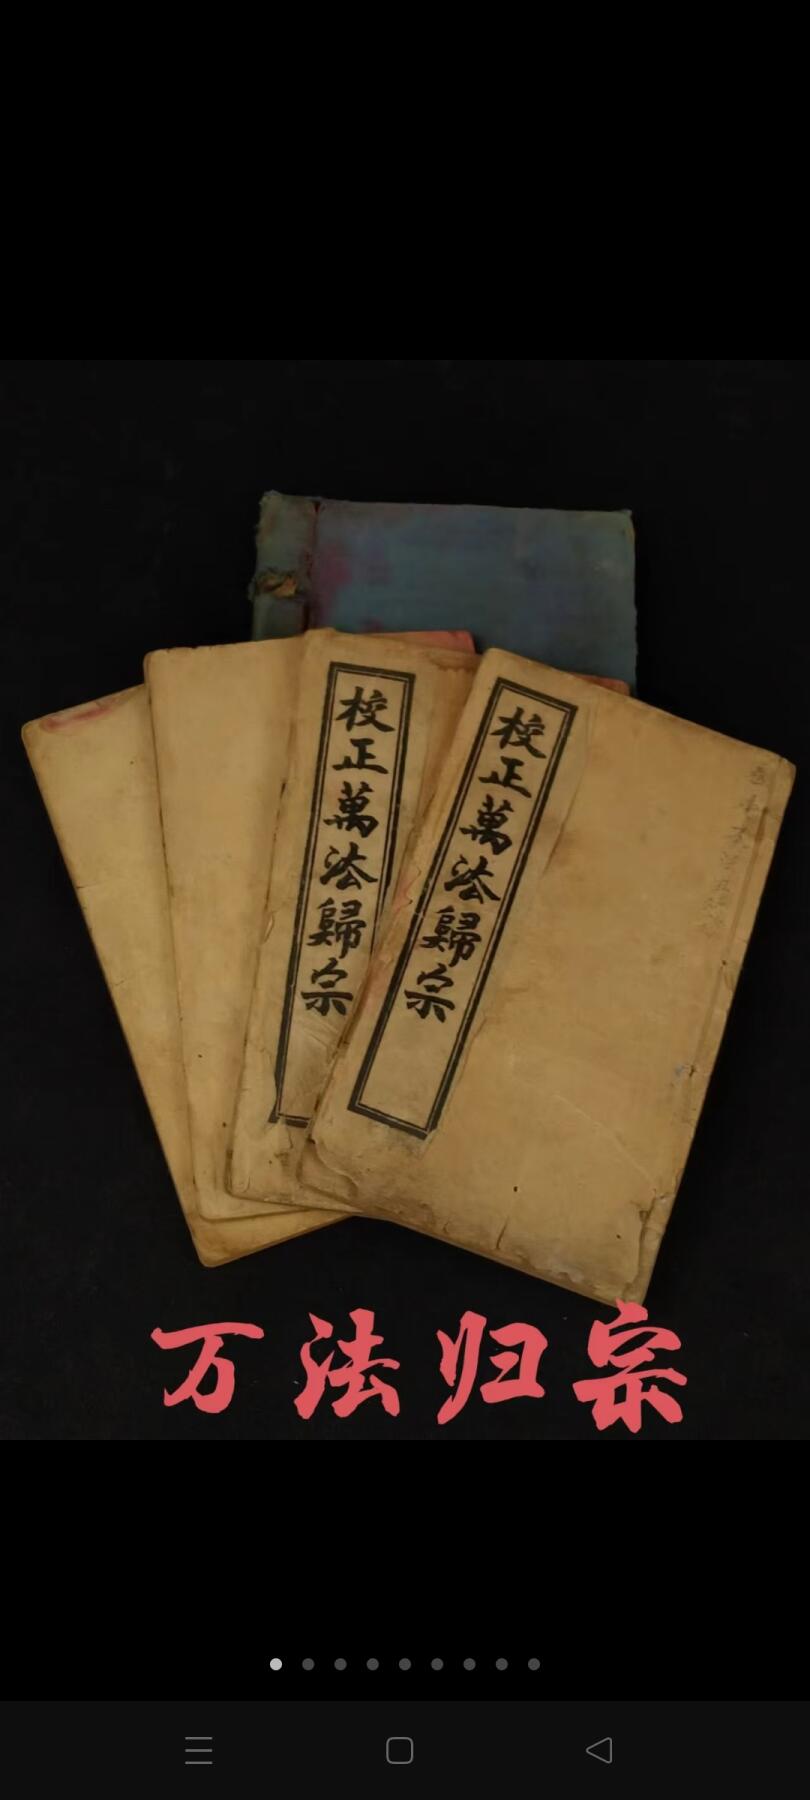 校正萬法歸宗
校正萬法歸宗
万法归宗